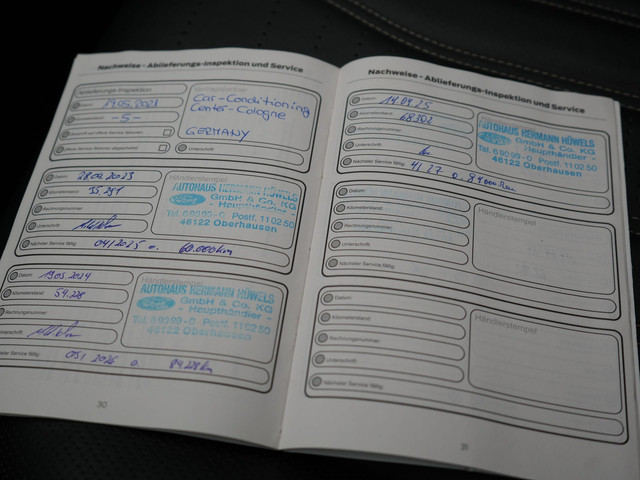 Nachweise - Ablieferungs-Inspektion und Service
Ablieferungs-Inspektion
Datum
-5-
Car-Conditioning
Center-Cologne
GERMANY
Unterschrift
Datum
Kilometerstand
35.291
Rechnungsnummer
Unterschrift
Nächster Service fällig
04/2025 o. 60.000km
Händlerstempel
AUTOHAUS HERMANN HÜWELS
GmbH & Co. KG
- Haupthändler -
Tel. 6 99 99 - 0 Postf. 11 02 50
46122 Oberhausen
Datum
19.03.2024
Kilometerstand
54.228
Rechnungsnummer
Unterschrift
Nächster Service fällig
03/2026 o. 84228km
AUTOHAUS HERMANN HÜWELS
GmbH & Co. KG
- Haupthändler -
Tel. 6 99 99 - 0 Postf. 11 02 50
46122 Oberhausen
30
Nachweise - Ablieferungs-Inspektion und Service
Datum
14.04.25
Kilometerstand
68302
Rechnungsnummer
Unterschrift
Nächster Service fällig
4/27 o.
AUTOHAUS HERMANN HÜWELS
GmbH & Co. KG
- Haupthändler -
Tel. 6 99 99 - 0 Postf. 11 02 50
46122 Oberhausen
Datum
Kilometerstand
Rechnungsnummer
Unterschrift
Nächster Service fällig
Händlerstempel
Datum
Kilometerstand
Rechnungsnummer
Unterschrift
Nächster Service fällig
Händlerstempel
31